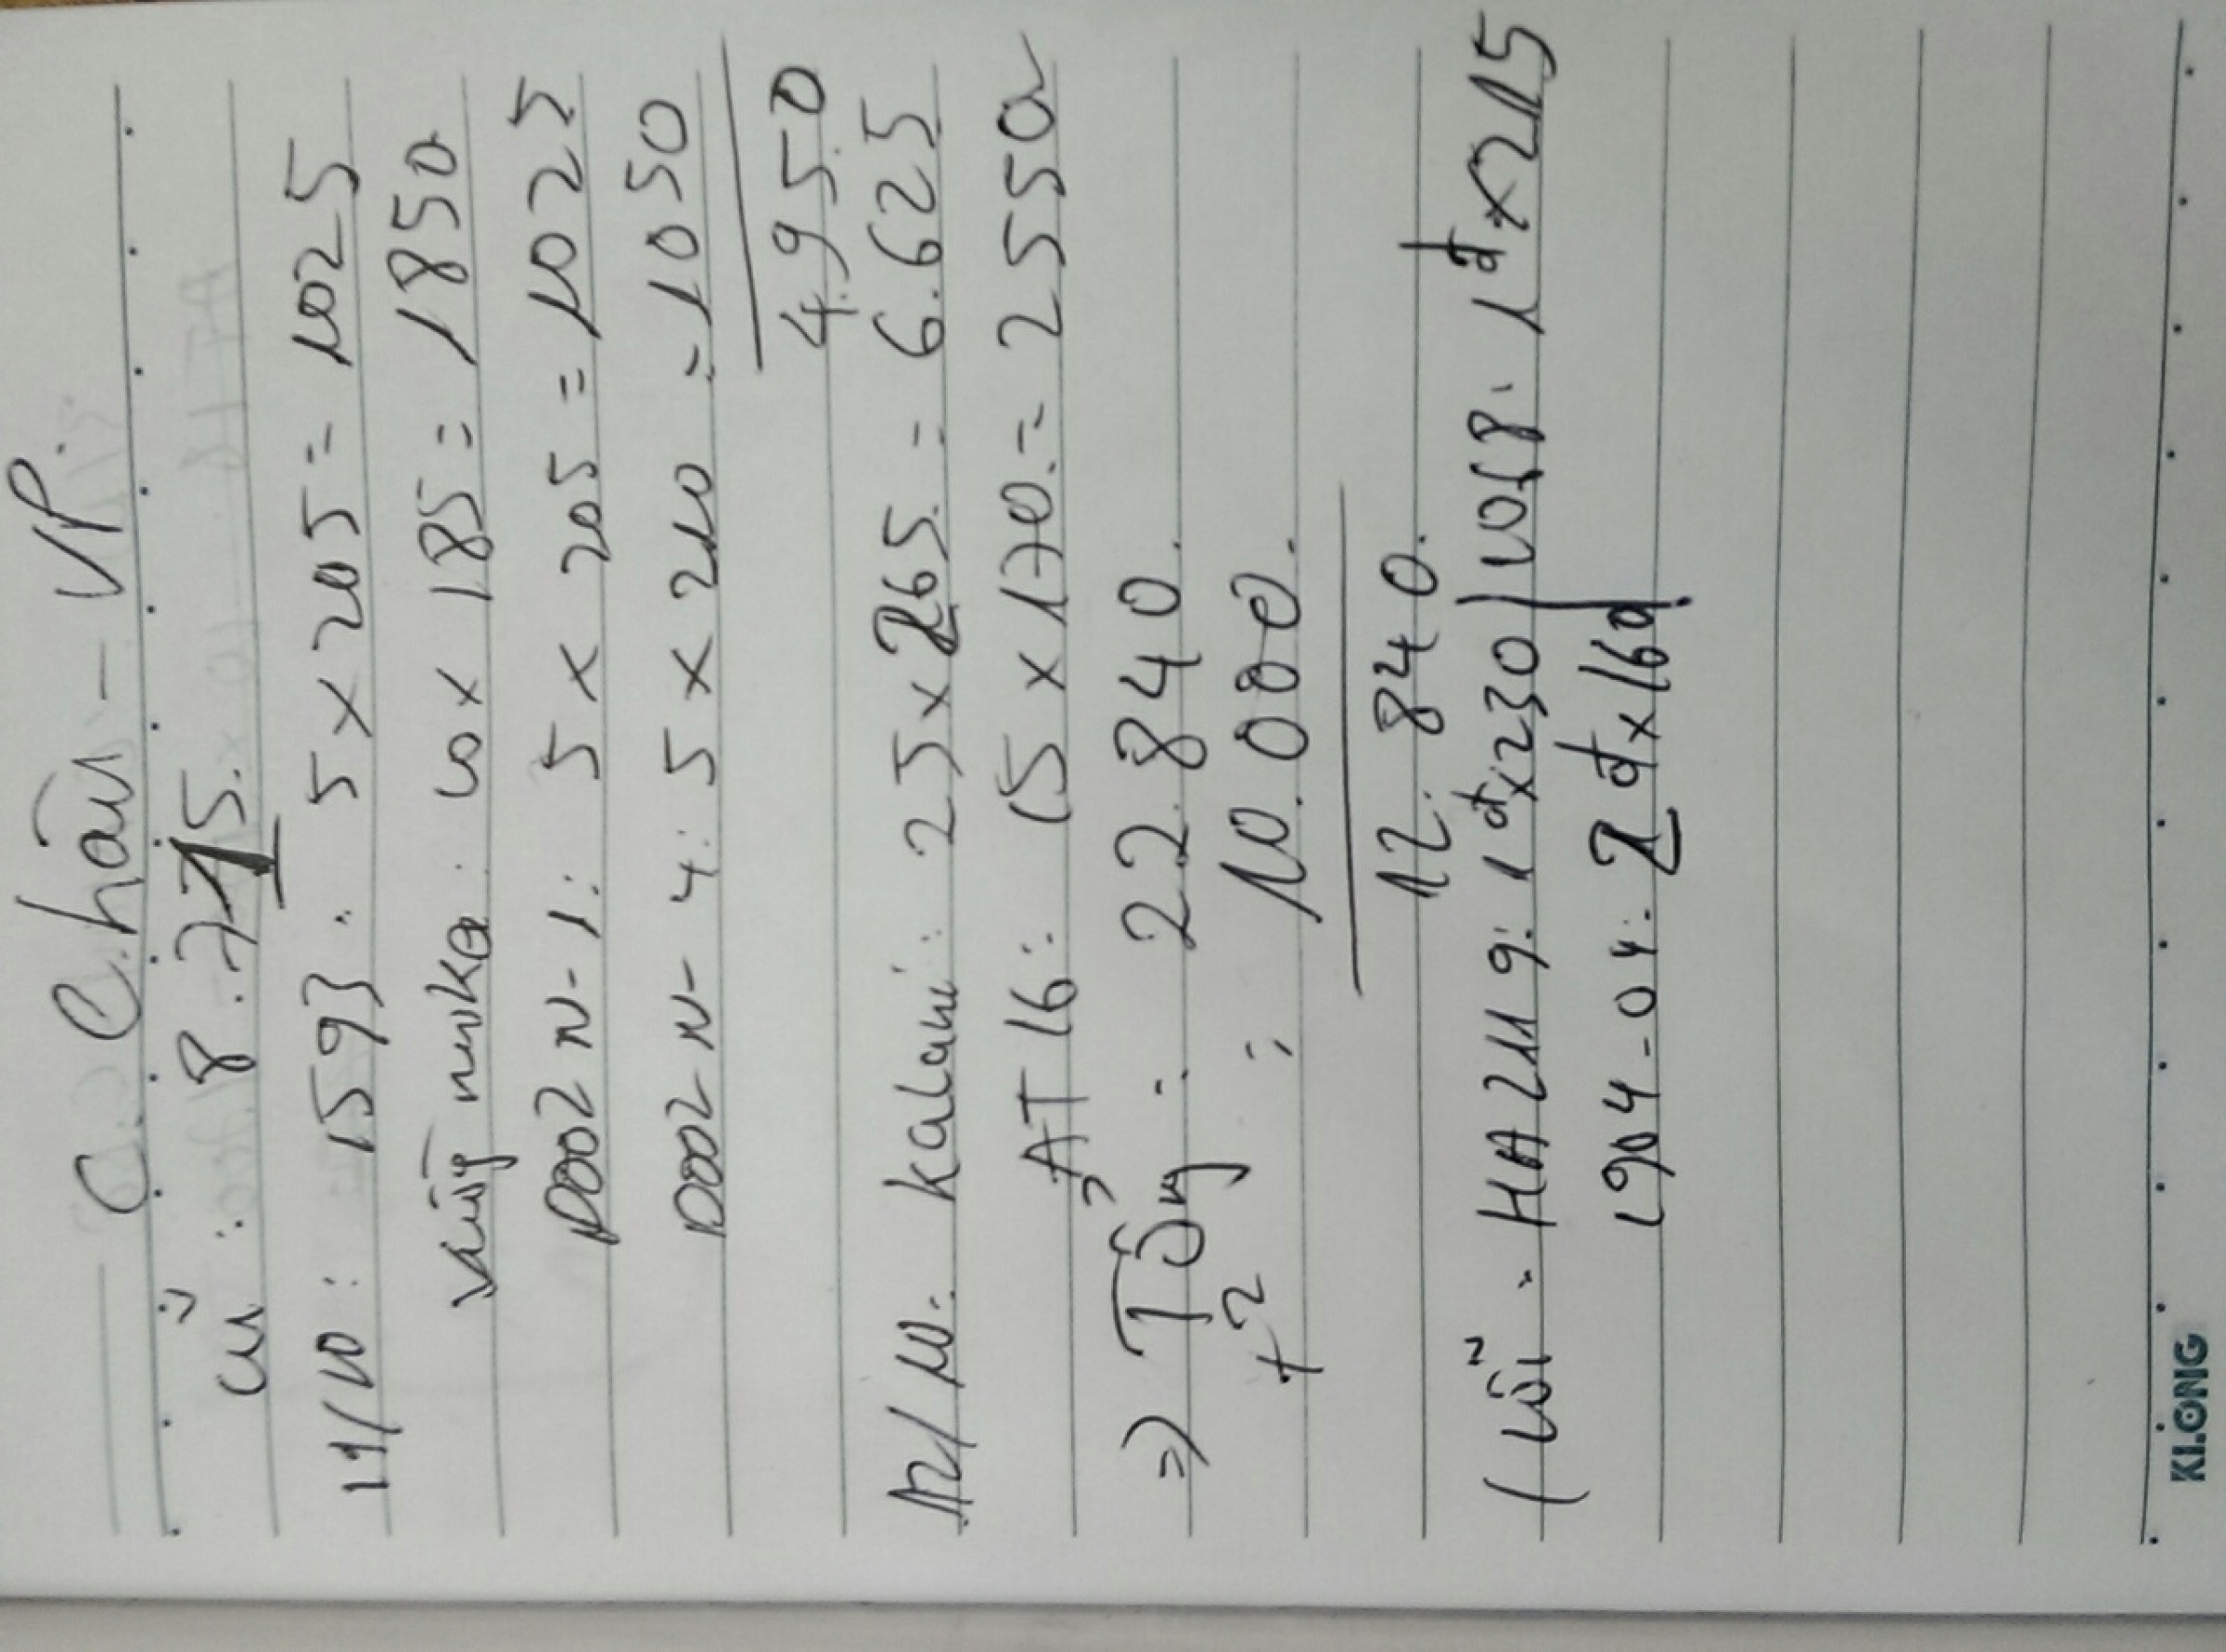 C. Chân - VP.
Cũ: 8.715.
11/10: 1593. 5 x 205 = 1025
Vàng muka: 10 x 185 = 1850
D002 N-1: 5 x 205 = 1025
D002 N-4: 5 x 210 = 1050
4.950
12/10: Kalani: 25 x 265 = 6.625
AT 16: 15 x 170 = 2550
=> Tổng: 22.840.
T2: 10.000.
12.840.
(Lỗi - HA2119: 1đ x 230 | 1058: 1đ x 215
1904-04: 2đ x 160
KLONG